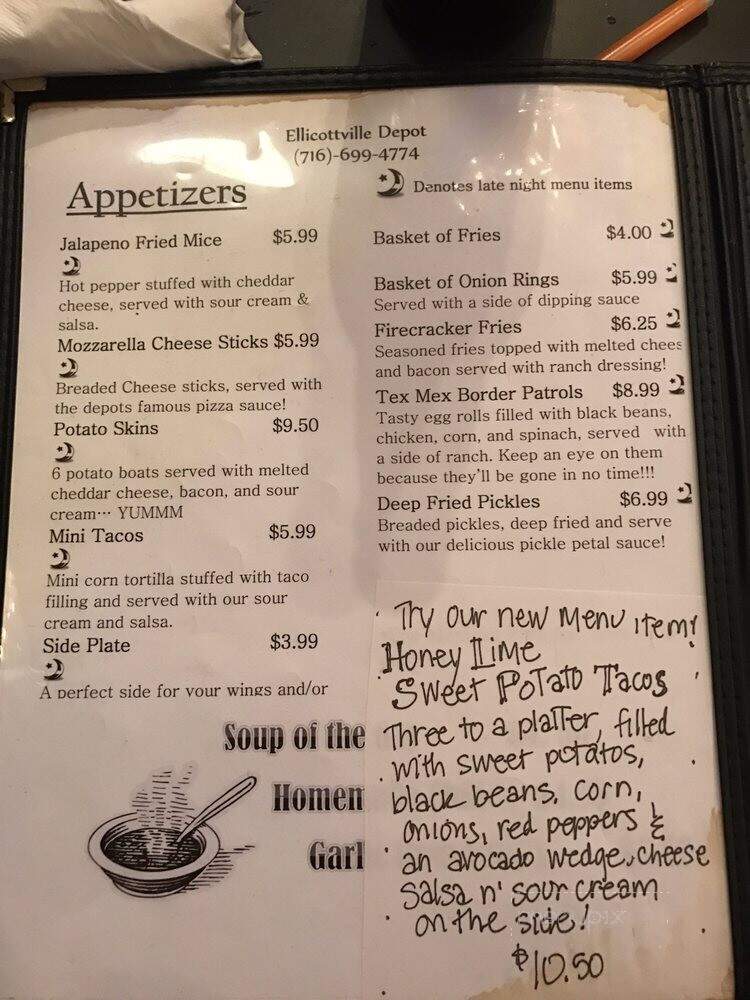 Ellicottville Depot
(716)-699-4774
Appetizers
Denotes late night menu items
Jalapeno Fried Mice $5.99
Hot pepper stuffed with cheddar
cheese, served with sour cream &
salsa.
Mozzarella Cheese Sticks $5.99
Breaded Cheese sticks, served with
the depots famous pizza sauce!
Potato Skins $9.50
6 potato boats served with melted
cheddar cheese, bacon, and sour
cream… YUMMM
Mini Tacos $5.99
Mini corn tortilla stuffed with taco
filling and served with our sour
cream and salsa.
Side Plate $3.99
A perfect side for your wings and/or
Basket of Fries $4.00
Basket of Onion Rings $5.99
Served with a side of dipping sauce
Firecracker Fries $6.25
Seasoned fries topped with melted chees
and bacon served with ranch dressing!
Tex Mex Border Patrols $8.99
Tasty egg rolls filled with black beans,
chicken, corn, and spinach, served with
a side of ranch. Keep an eye on them
because they'll be gone in no time!!!
Deep Fried Pickles $6.99
Breaded pickles, deep fried and serve
with our delicious pickle petal sauce!
Soup of the
Homem
Garl
Try our new Menu item!
Honey Lime
Sweet Potato Tacos
Three to a platter, filled
with sweet potatos,
black beans, corn,
onions, red peppers &
an avocado wedge, cheese
Salsa n' sour cream
on the side!
$10.50